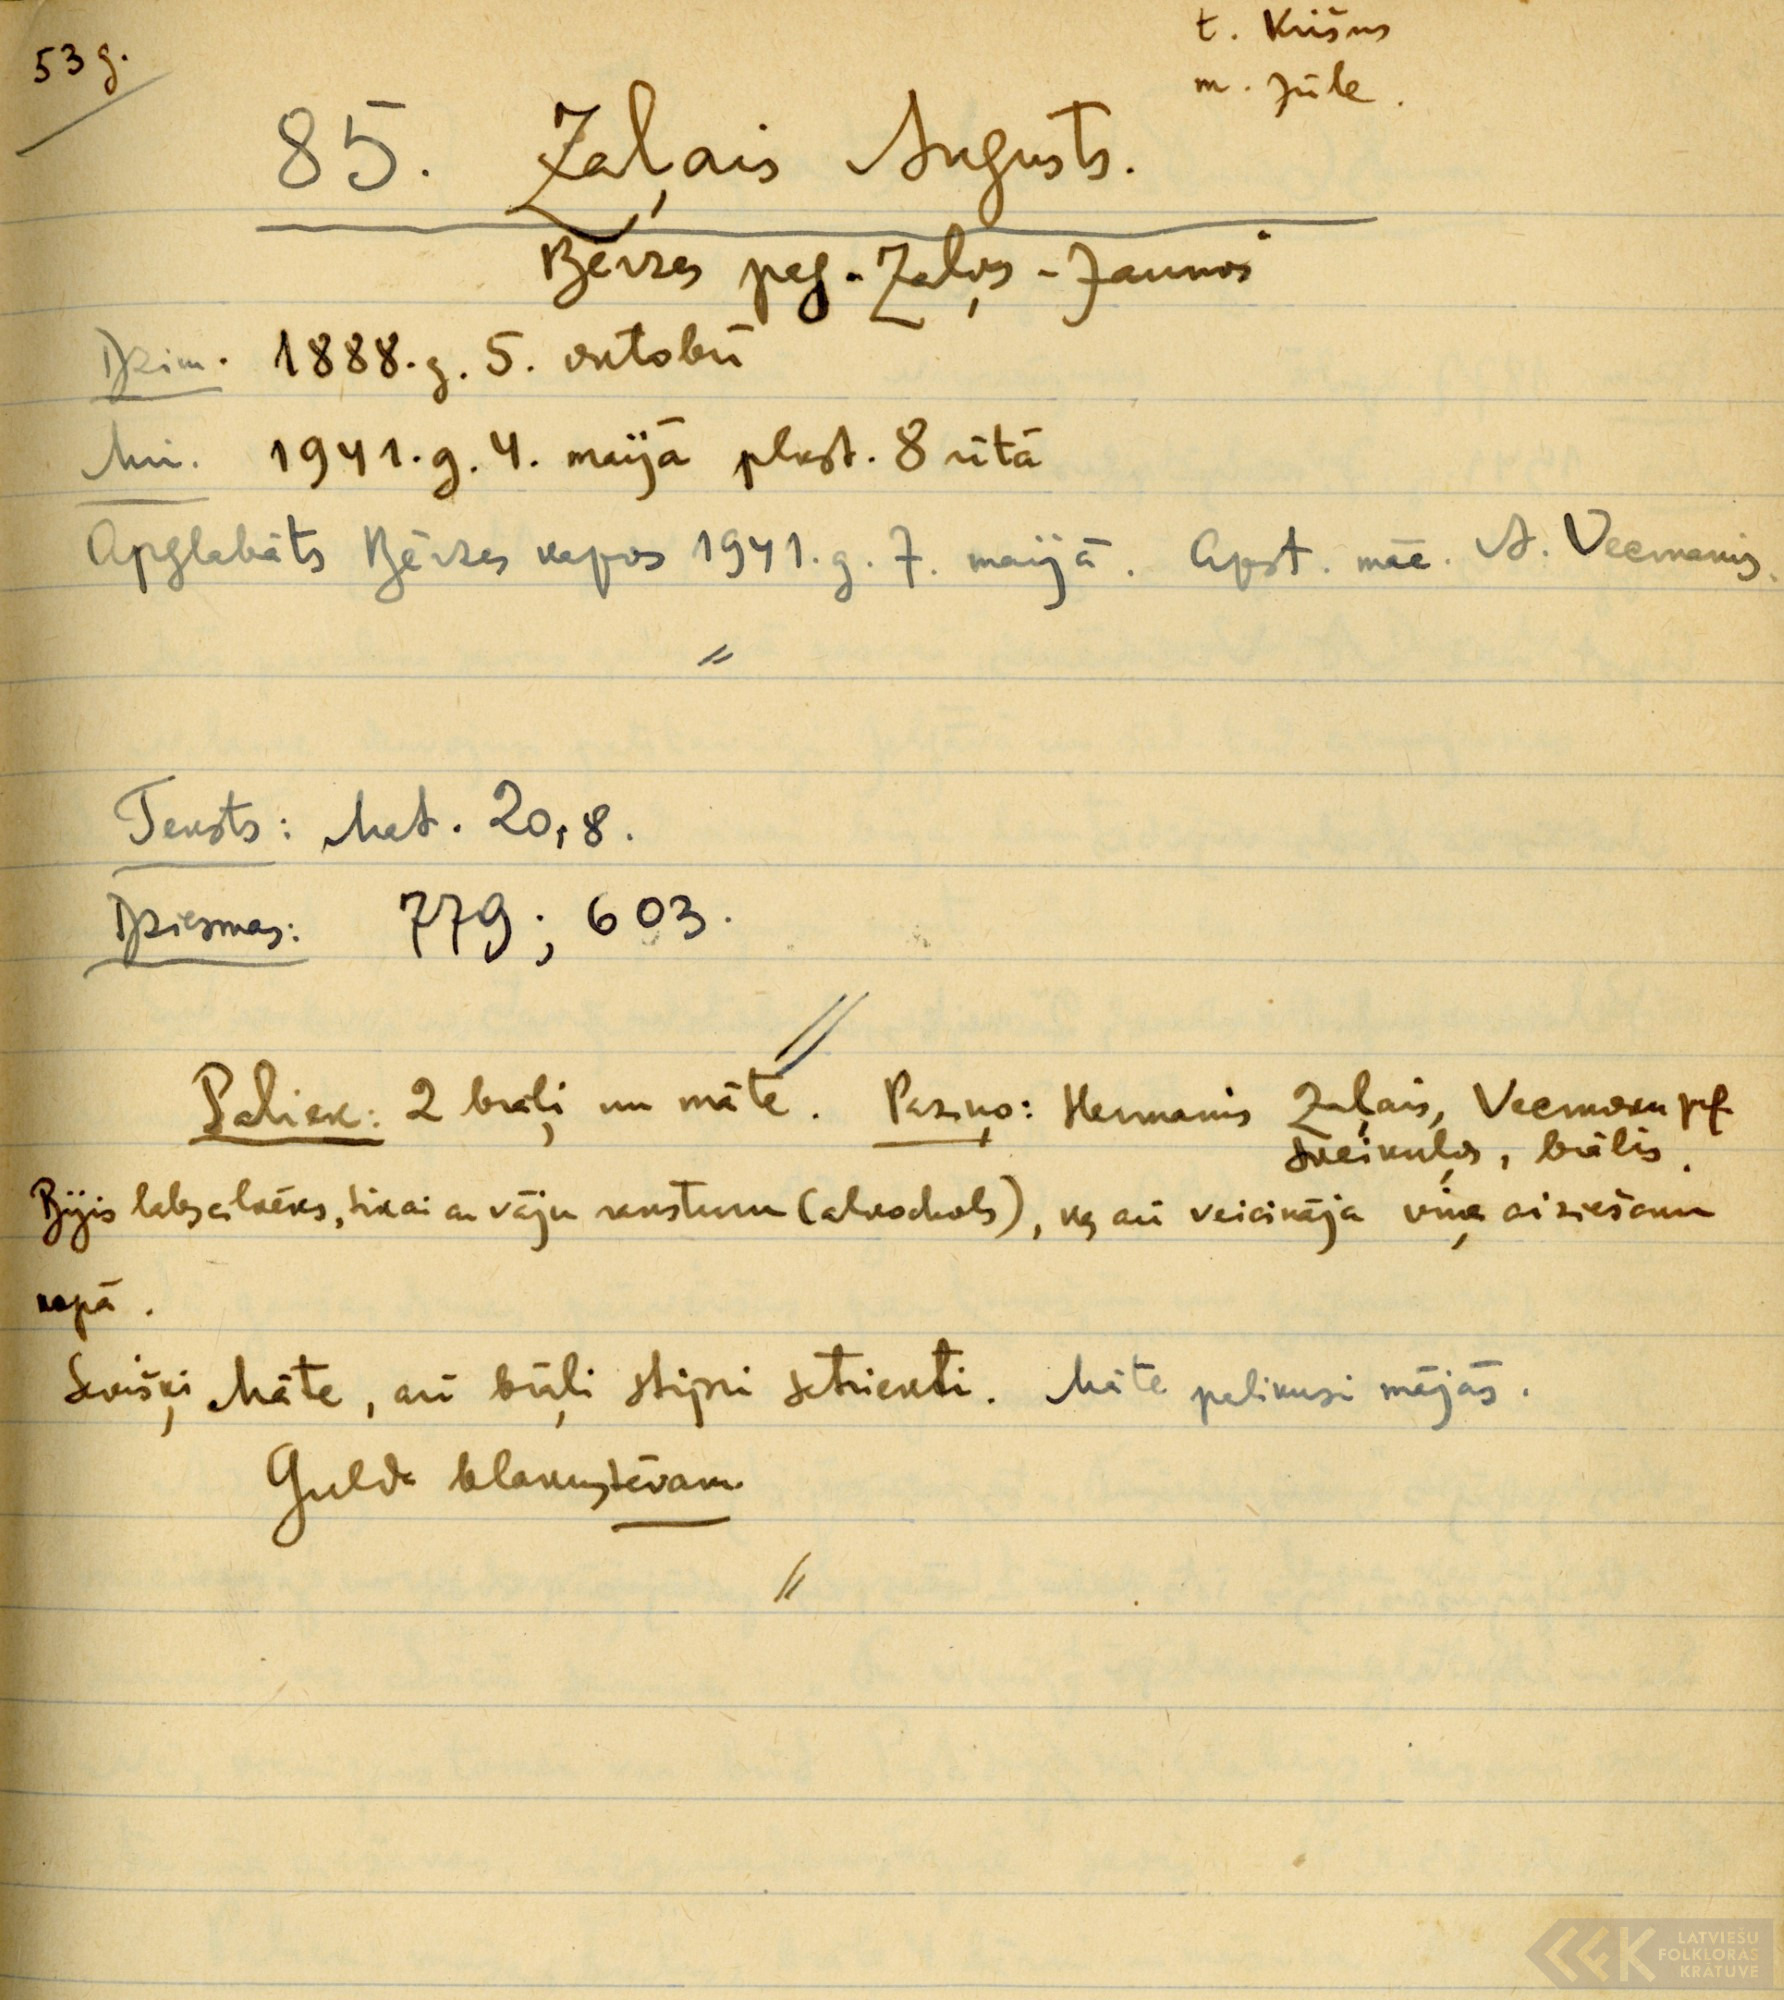 53 g.
t. Krišus
m. Jūle.
85. Zaļais Augusts.
Bērzes pag. Zaļos-Jaunos
Dzim. 1888. g. 5. oktobrī
Mir. 1941. g. 4. maijā plkst. 8 rītā
Apglabāts Bērzes kapos 1941. g. 7. maijā. Apst. māc. A. Vecmanis.
Teksts: Mat. 20,8.
Dziesmas: 779; 603.
Paliek: 2 brāļi un māte. Paziņo: Hermanis Zaļais, Vecmoku pg.
brālis.
Bijis labs cilvēks, tikai ar vāju raksturu (alkohols), kas arī veicināja viņa aiziešanu
kapā.
Sevišķi Māte, arī brāļi stipri satriekti. Māte palikusi mājās.
Gulda blakus tēvam
LATVIEŠU
FOLKLORAS
KRĀTUVE